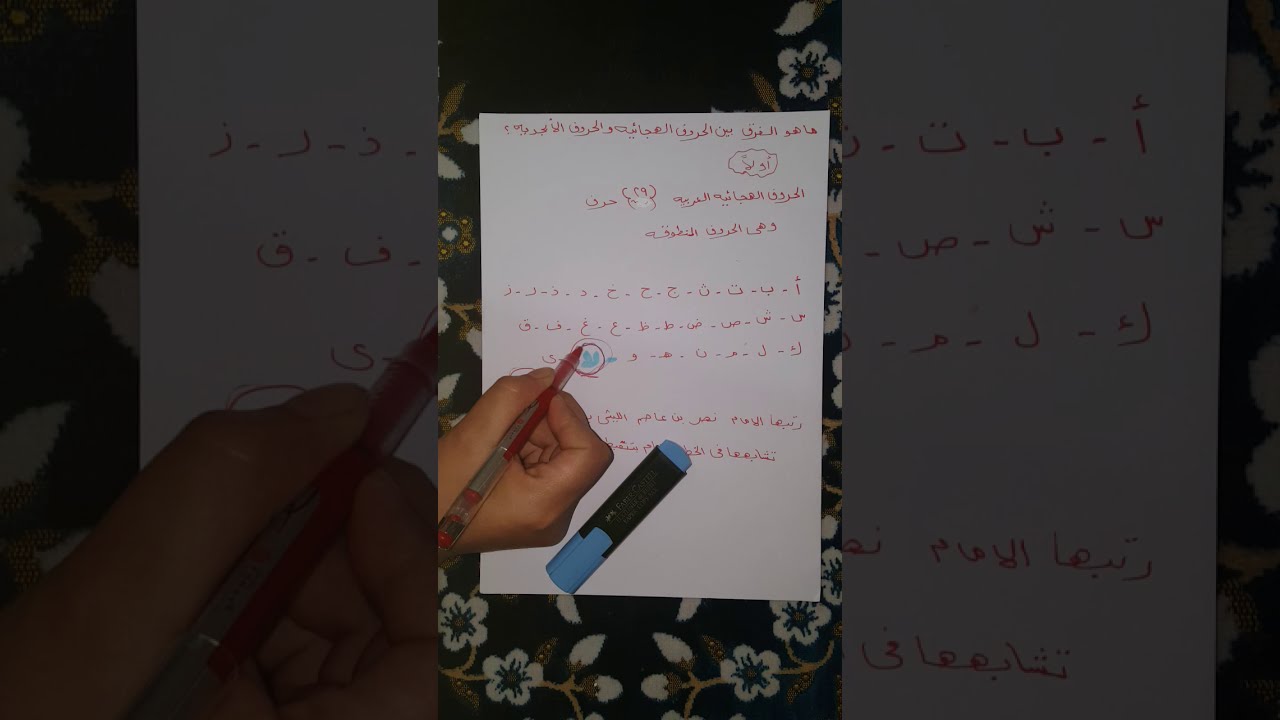 ما هو الفرق بين الحروف الهجائيه والحروف الأبجديه ؟
أولاً
الحروف الهجائيه العربيه (٢٩) حرف
وهى الحروف المنطوقه
أ - ب - ت - ث - ج - ح - خ - د - ذ - ر - ز
س - ش - ص - ض - ط - ظ - ع - غ - ف - ق
ك - ل - م - ن - هـ - و - لا - ى
رتبها الامام نصر بن عاصم الليثى
تشابهها فى
Faber-Castell